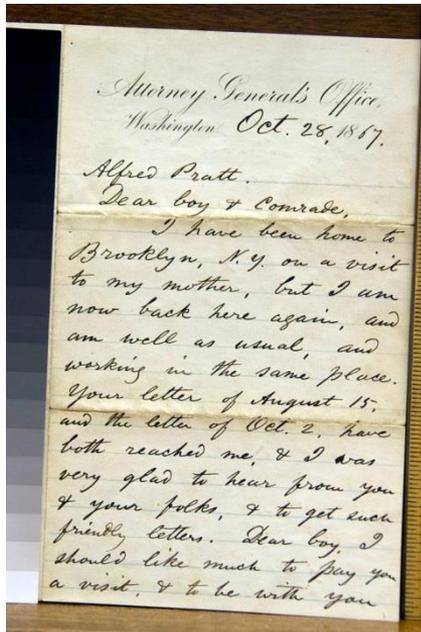 Attorney General's Office,
Washington. Oct. 28, 1867.
Alfred Pratt.
Dear boy & Comrade,
I have been home to
Brooklyn, N.Y. on a visit
to my mother, but I am
now back here again, and
am well as usual, and
working in the same place.
Your letter of August 15,
and the letter of Oct. 2, have
both reached me, & I was
very glad to hear from you
& your folks, & to get such
friendly letters. Dear boy, I
should like much to pay you
a visit, & to be with you